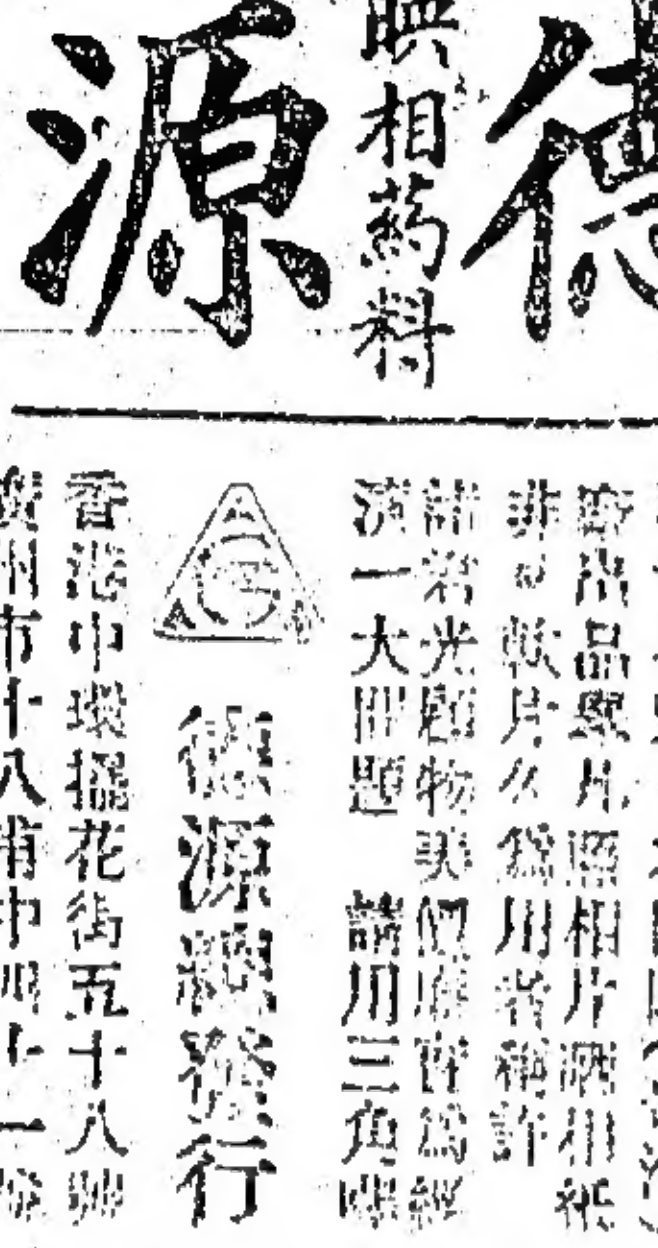 德
映相葯料
源
廠出品與凡照相片晒相紙
非 軟片久為用者稱許
諸君光顧物美價廉實為經
濟一大問題 請用三角牌
德源總發行
香港中環擺花街五十八號
廣州市十八甫中四十一號